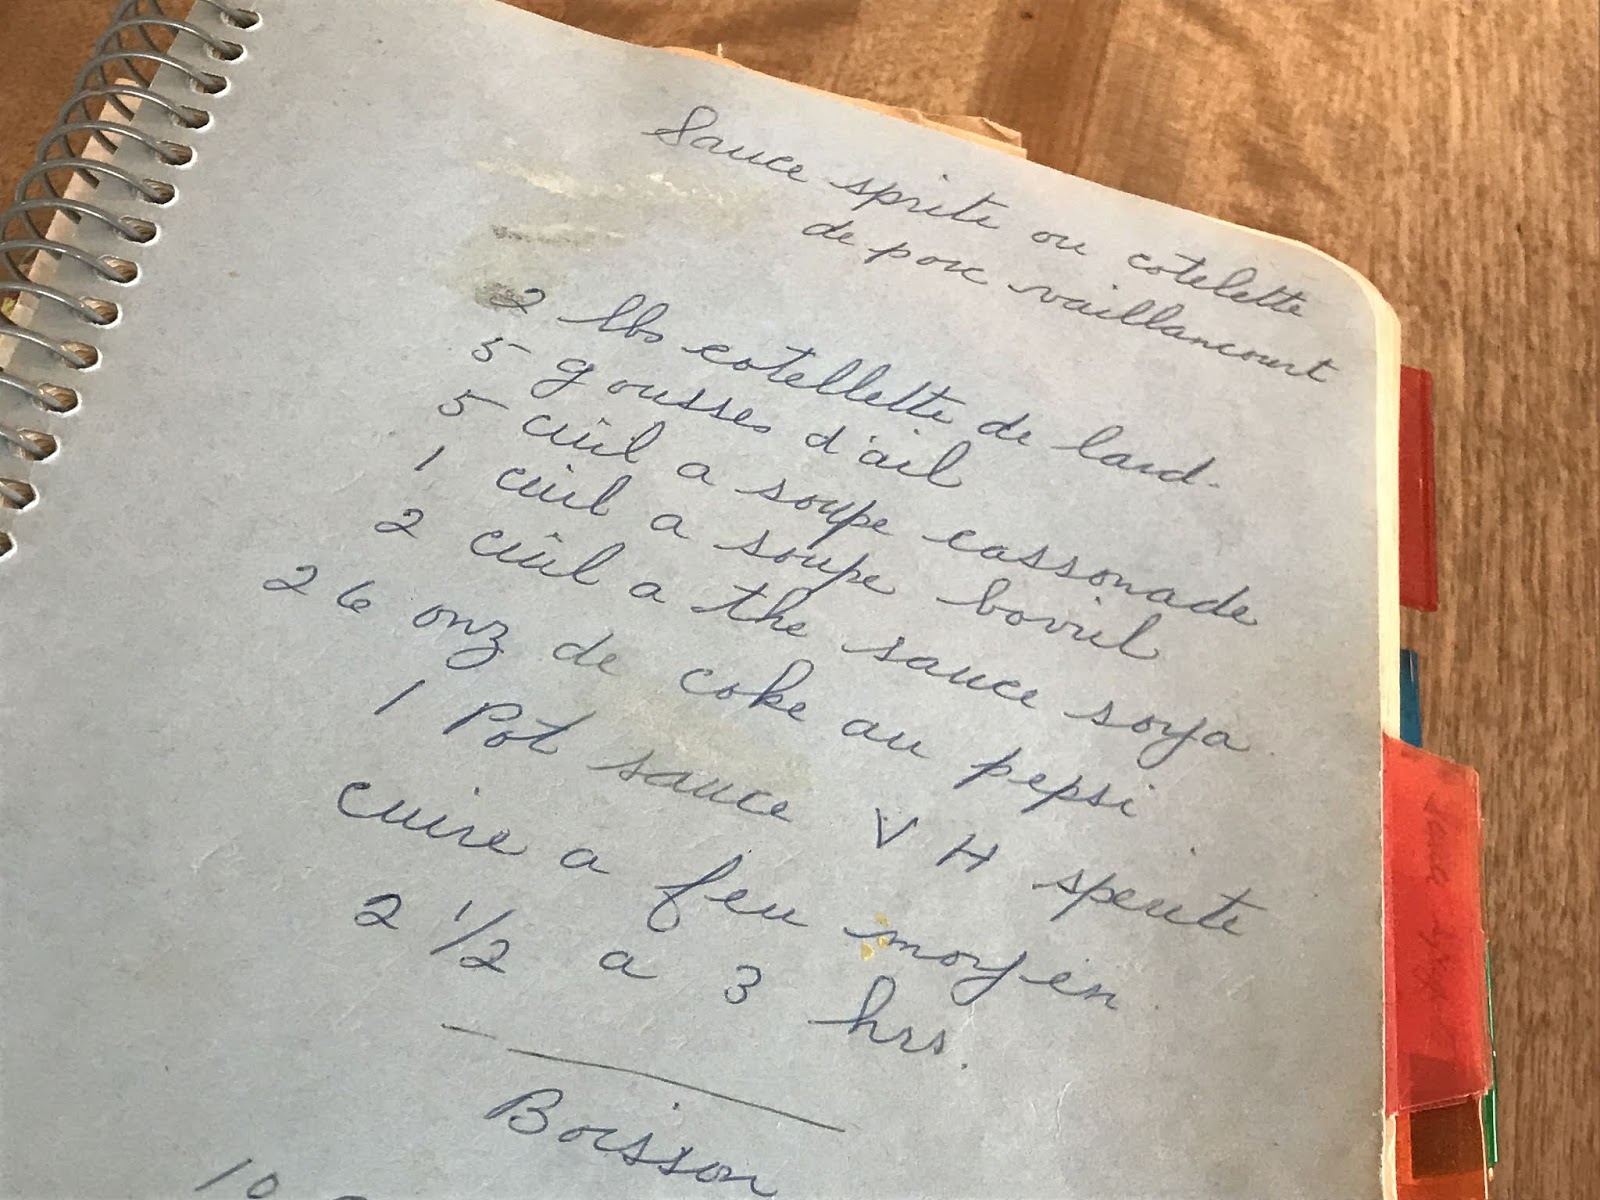 Sauce sprite ou cotelette
de porc vaillancourt
2 lbs cotellette de lard.
5 gousses d'ail
5 cüil a soupe cassonade
1 cüil a soupe bovril
2 cüil a the sauce soya
26 onz de coke au pepsi
1 Pot sauce VH sperite
cuire a feu moyen
2 1/2 a 3 hrs.
Boisson
10